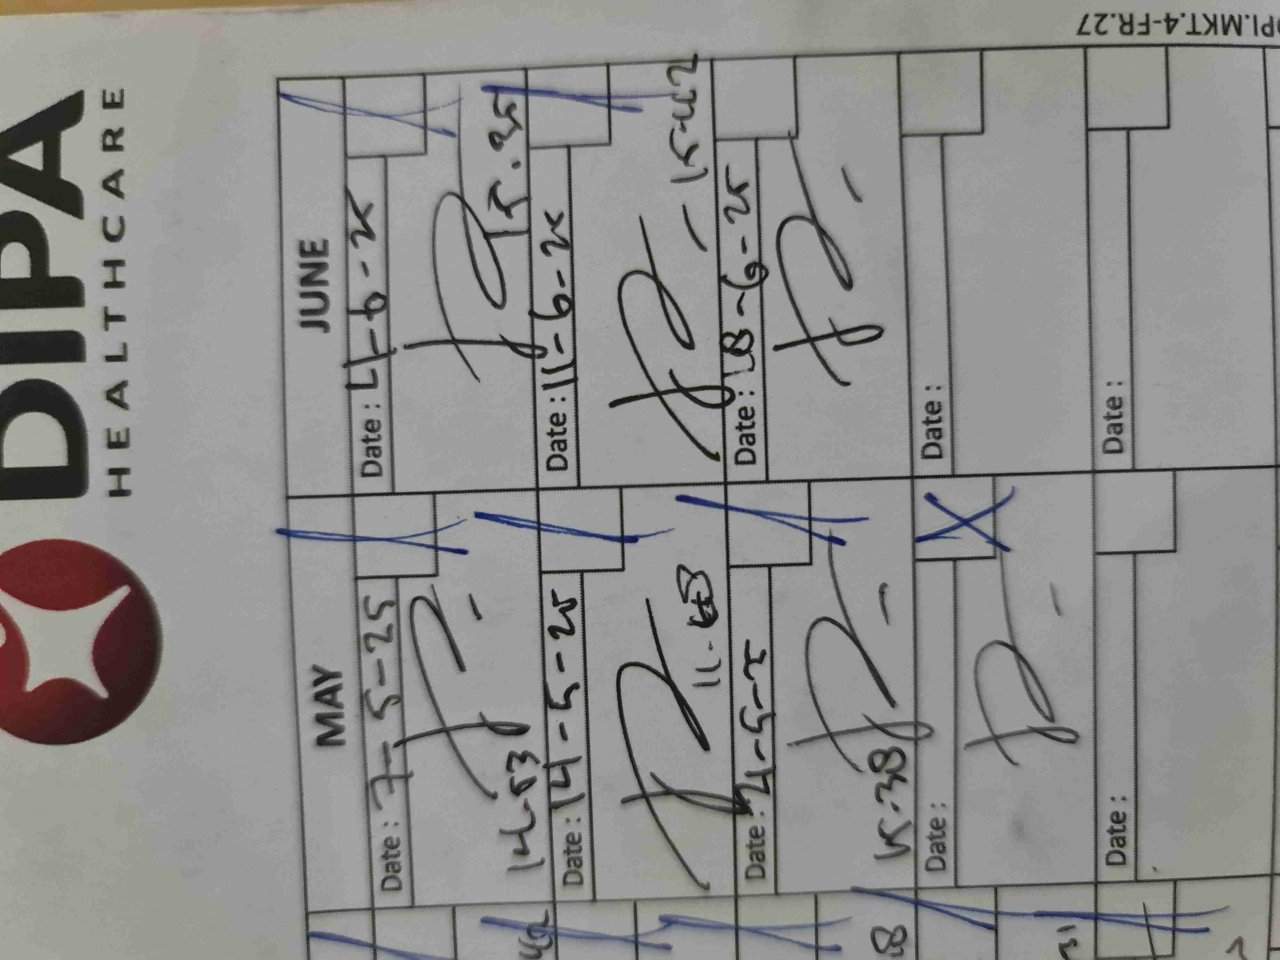 DIPA
HEALTHCARE
DPI.MKT.4-FR.27
MAY
Date : 7-5-25
14-53
Date : 14-5-25
11-
Date : 21-5-25
15-38
Date :
Date :
JUNE
Date : 4-6-25
15.35
Date : 11-6-25
15-42
Date : 18-6-25
Date :
Date :